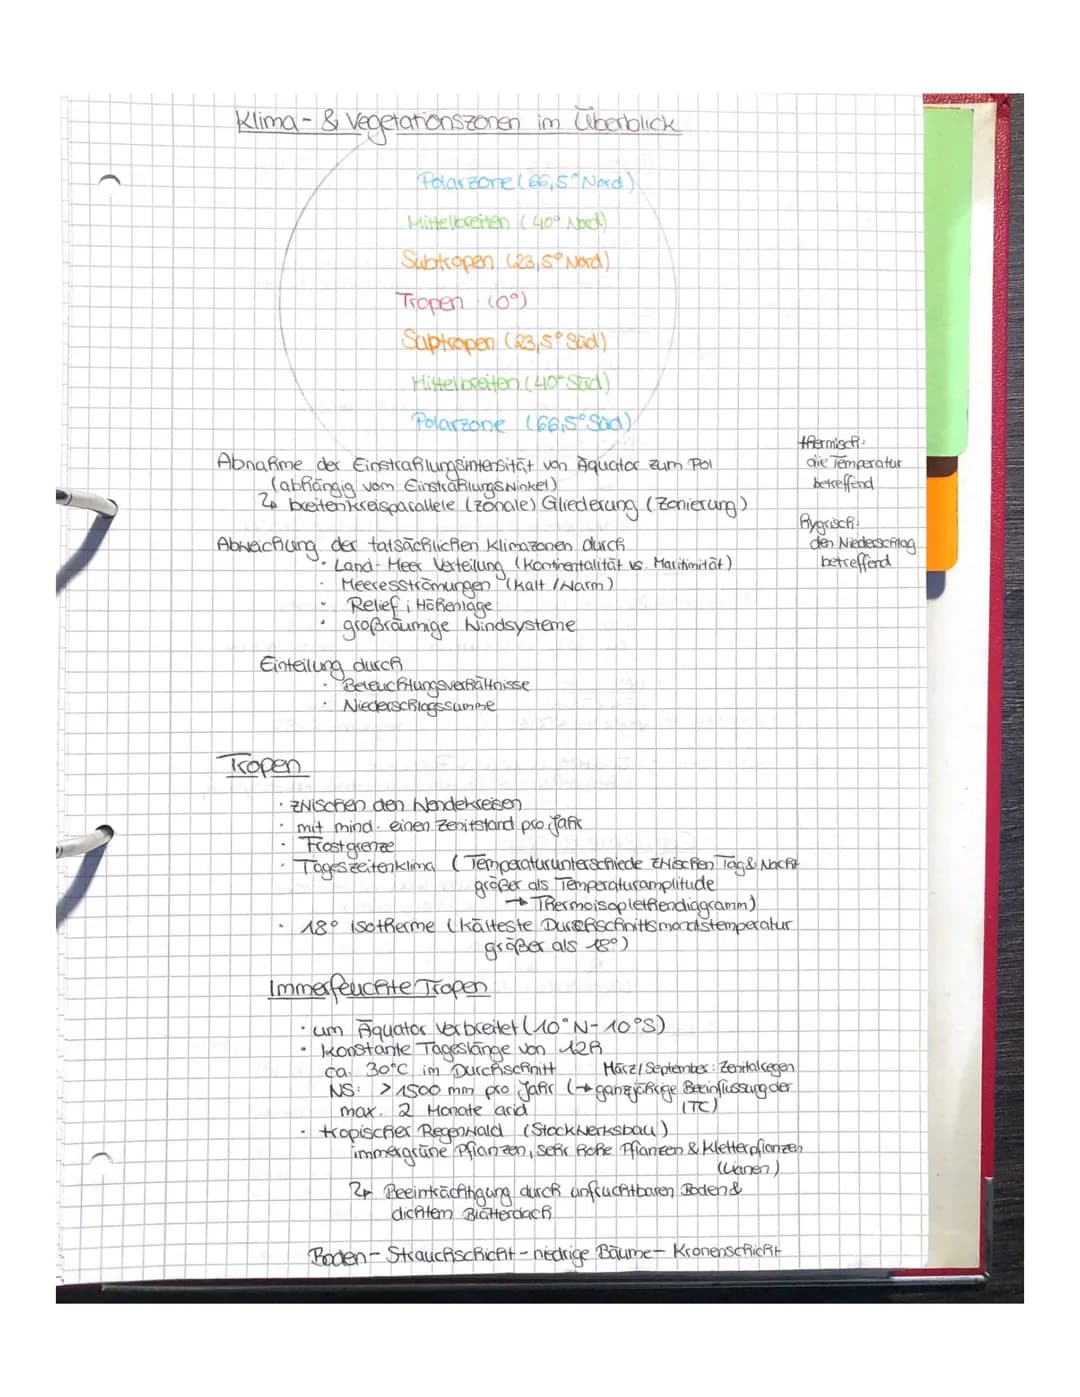 Klima - & Vegetationszonen im Überblick
Polarzone (66,5° Nord)
Mittelbreiten (40° Nord)
Subtropen (23,5° Nord)
Tropen (0°)
Suptropen (23,5° Süd)
Mittelbreiten (40° Süd)
Polarzone (66,5° Süd)
Abnahme der Einstrahlungsintersität von Äquator zum Pol
(abhängig vom Einstrahlungswinkel)
↳ breitenkreisparallele (zonale) Gliederung (Zonierung)
thermisch:
die Temperatur
betreffend
hygrisch:
den Niederschlag
betreffend
Abweichung der tatsächlichen Klimazonen durch
· Land- Meer Verteilung (Kontinentalität vs. Maritimität)
· Meeresströmungen (kalt / warm)
· Relief ; Höhenlage
· großräumige Windsysteme
Einteilung durch
· Beleuchtungsverhältnisse
· Niederschlagssumme
Tropen
· zwischen den Wendekreisen
· mit mind. einen Zenitstand pro Jahr
· Frostgrenze
· Tageszeitenklima (Temperaturunterschiede zwischen Tag & Nacht
größer als Temperaturamplitude
→ Thermoisoplethendiagramm)
· 18° Isotherme (kälteste Durchschnittsmonatstemperatur
größer als 18°)
Immerfeuchte Tropen
· um Äquator verbreitet (10°N - 10°S)
· konstante Tageslänge von 12h
ca. 30°C im Durchschnitt März/September: Zenitalregen
NS: >1500 mm pro Jahr (→ ganzjährige Beeinflussung der
max. 2 Monate arid ITC)
· tropischer Regenwald (Stockwerksbau)
immergrüne Pflanzen, sehr hohe Pflanzen & Kletterpflanzen
(Lianen)
↳ Beeinträchtigung durch unfruchtbaren Boden &
dichtem Blätterdach
Boden - Strauchschicht - niedrige Bäume - Kronenschicht